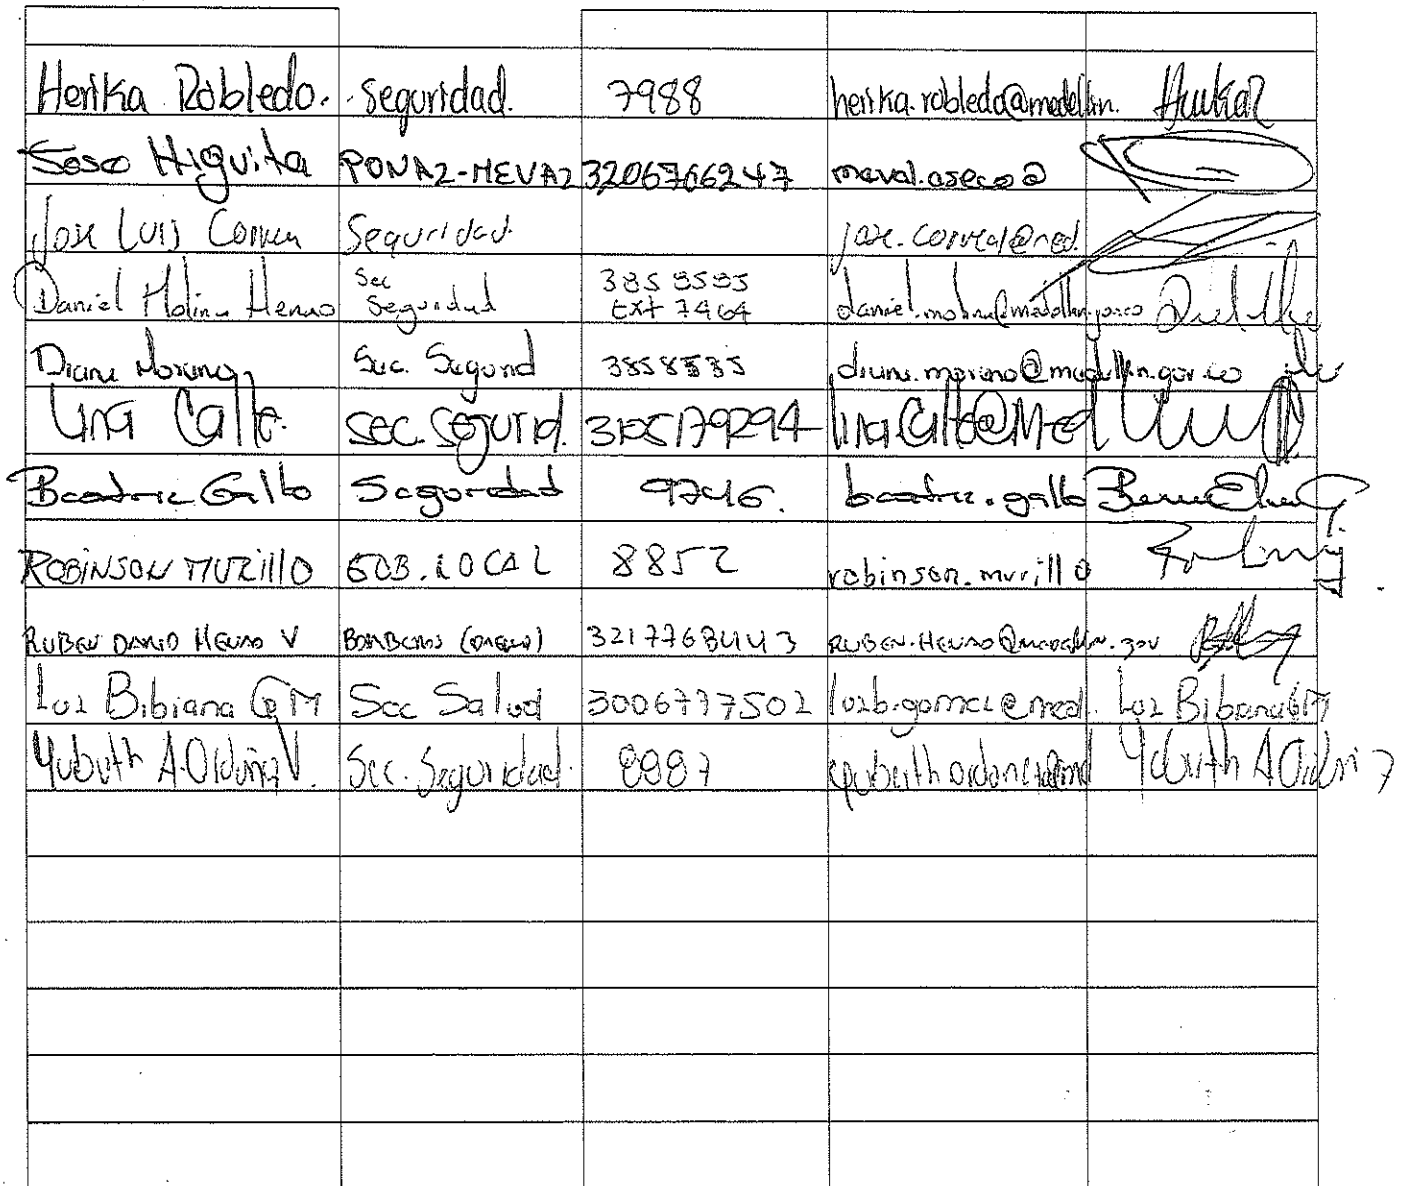 Herika Robledo. seguridad. 7988 herika.robledo@medellin.
Higuita PONAZ-MEVAZ 3206766247 meval.aseco@
Jose Luis Seguridad. jose.correal@med.
Daniel Molina Henao Sec Seguridad 3858585 Ext 7464 daniel.molina@medellin.gov.co
Diana Moreno Sec. Segurid 3858585 diana.moreno@medellin.gov.co
Lina Calle. Sec. Segurid. lina.Calle@Med
Beatriz Gallo Seguridad 9746. beatriz.gallo
ROBINSON MURILLO GOB. LOCAL 8852 robinson.murillo@
RUBEN DARIO HENAO V BOMBEROS 3217768443 RUBEN.HENAO@medellin.gov
Luz Bibiana G M Sec Salud 3006777502 luzb.gomez@med. Luz Bibiana GM
Sec. Seguridad.